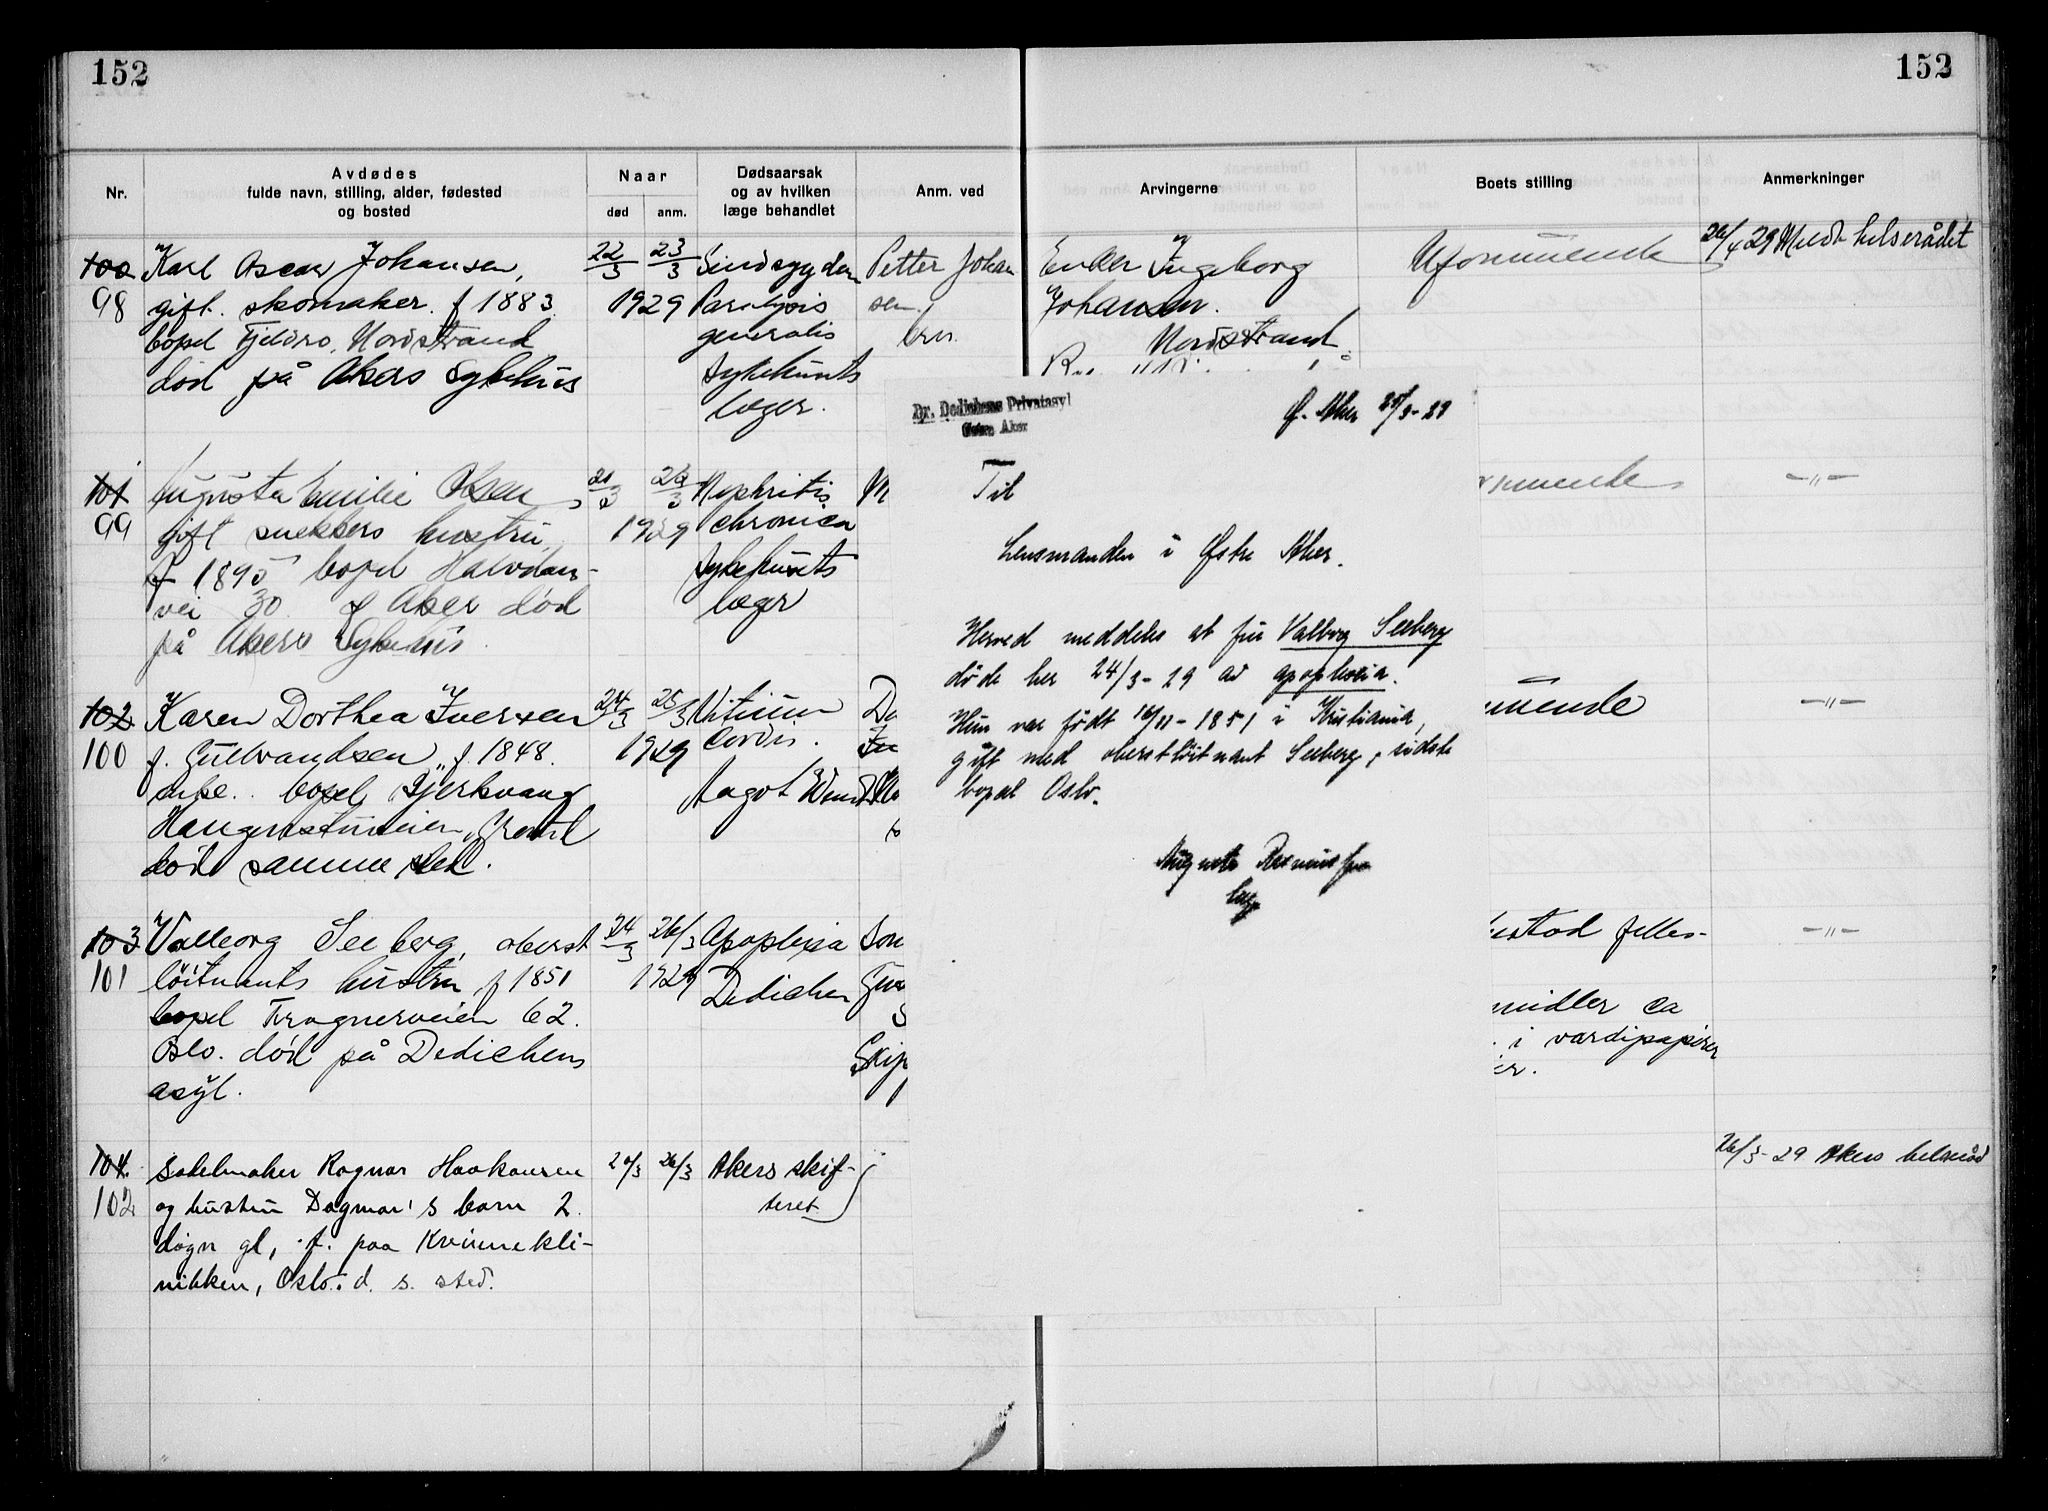 152
152
Nr.
Avdødes
fulde navn, stilling, alder, fødested
og bosted
Naar
død
anm.
Dødsaarsak
og av hvilken
læge behandlet
Anm. ved
Arvingerne
Boets stilling
Anmerkninger
100
98
Karl Oscar Johansen,
gift. skomaker. f 1883
bopel Fjeldro, Nordstrand
død på Akers Sykehus
22/3 23/3
1929
Sindssygdom
Paralysis
generalis
Sykehusets
læger.
Petter Johan
sen
bror.
Enken Ingeborg
Johansen.
Nordstrand
Uformuende
26/4 29 Medt helserådet
101
99
Augusta Emilie Olsen
gift snekkers hustru
f 1895 bopel Halvdans-
vei 30 f Aker død
på Akers Sykehus
21/3
1929
Nephritis
chronica
Sykehusets
læger
M
rmuende
-"-
102
100
Karen Dorthea Iversen
f. Gulbrandsen, f 1848.
enke. bopel Bjerkvang
død samme sted.
24/3 25/3
1929
Vitium
Cordis.
Aagot
muende
-"-
103
101
Valborg Seeberg, oberst
løitnants hustru, f 1851
bopel Frognerveien 62.
Oslo. død på Dedichens
asyl.
24/3 26/3
1929
Apoplexia
Dedichen
Skip
felles-
midler ca
i værdipapirer
er.
-"-
104
102
Sadelmaker Ragnar Haakonsen
og hustru Dagmar's barn 2
døgn gl, f. paa Kvinnekli-
nikken, Oslo. d. s. sted.
26/3
Akers skif-
teret
26/3-29 Akers helseråd
Dr. Dedichens Privatasyl
Østre Aker
Ø. Aker 25/3-29
Til
Lensmanden i Østre Aker.
Herved meddeles at fru Valborg Seeberg
døde her 24/3-29 av apoplexia.
Hun var født 16/11-1851 i Kristiania,
gift med oberstløitnant Seeberg, sidste
bopæl Oslo.
læge